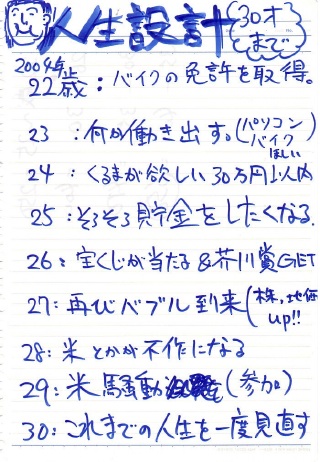 人生設計 (30才まで)
2004年
22歳：バイクの免許を取得。
23：何か働き出す。(パソコン バイク ほしい)
24：くるまが欲しい30万円以内
25：そろそろ貯金をしたくなる。
26：宝くじが当たる&芥川賞GET
27：再びバブル到来(株、地価 up!!)
28：米とかが不作になる
29：米騒動(参加)
30：これまでの人生を一度見直す